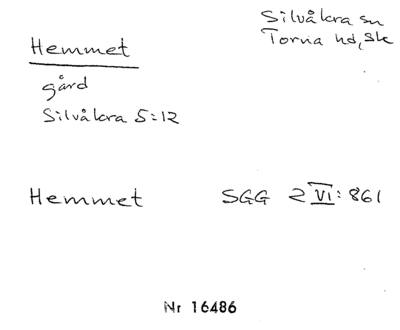 Silvåkra sn
Torna hd, Sk
Hemmet
gård
Silvåkra 5:12
Hemmet SGG 2 VI: 861
Nr 16486